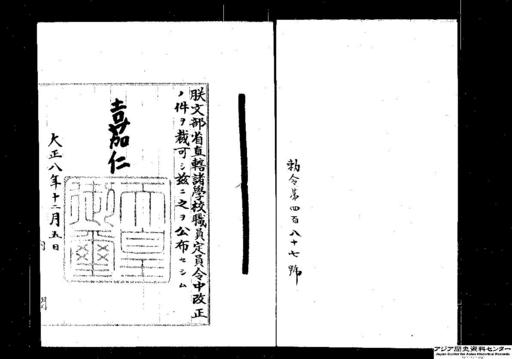 勅令第四百八十七號
朕文部省直轄諸學校職員定員令中改正
ノ件ヲ裁可シ茲ニ之ヲ公布セシム
嘉仁
天皇御璽
大正八年十二月五日
アジア歴史資料センター
Japan Center for Asian Historical Records